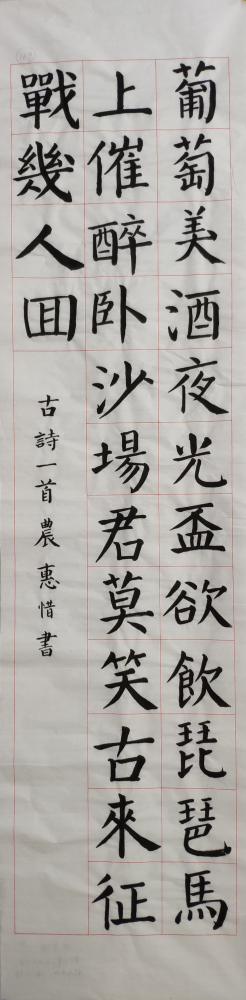 葡萄美酒夜光盃欲飲琵琶馬
上催醉卧沙場君莫笑古來征
戰幾人囬
古詩一首農惠惜書